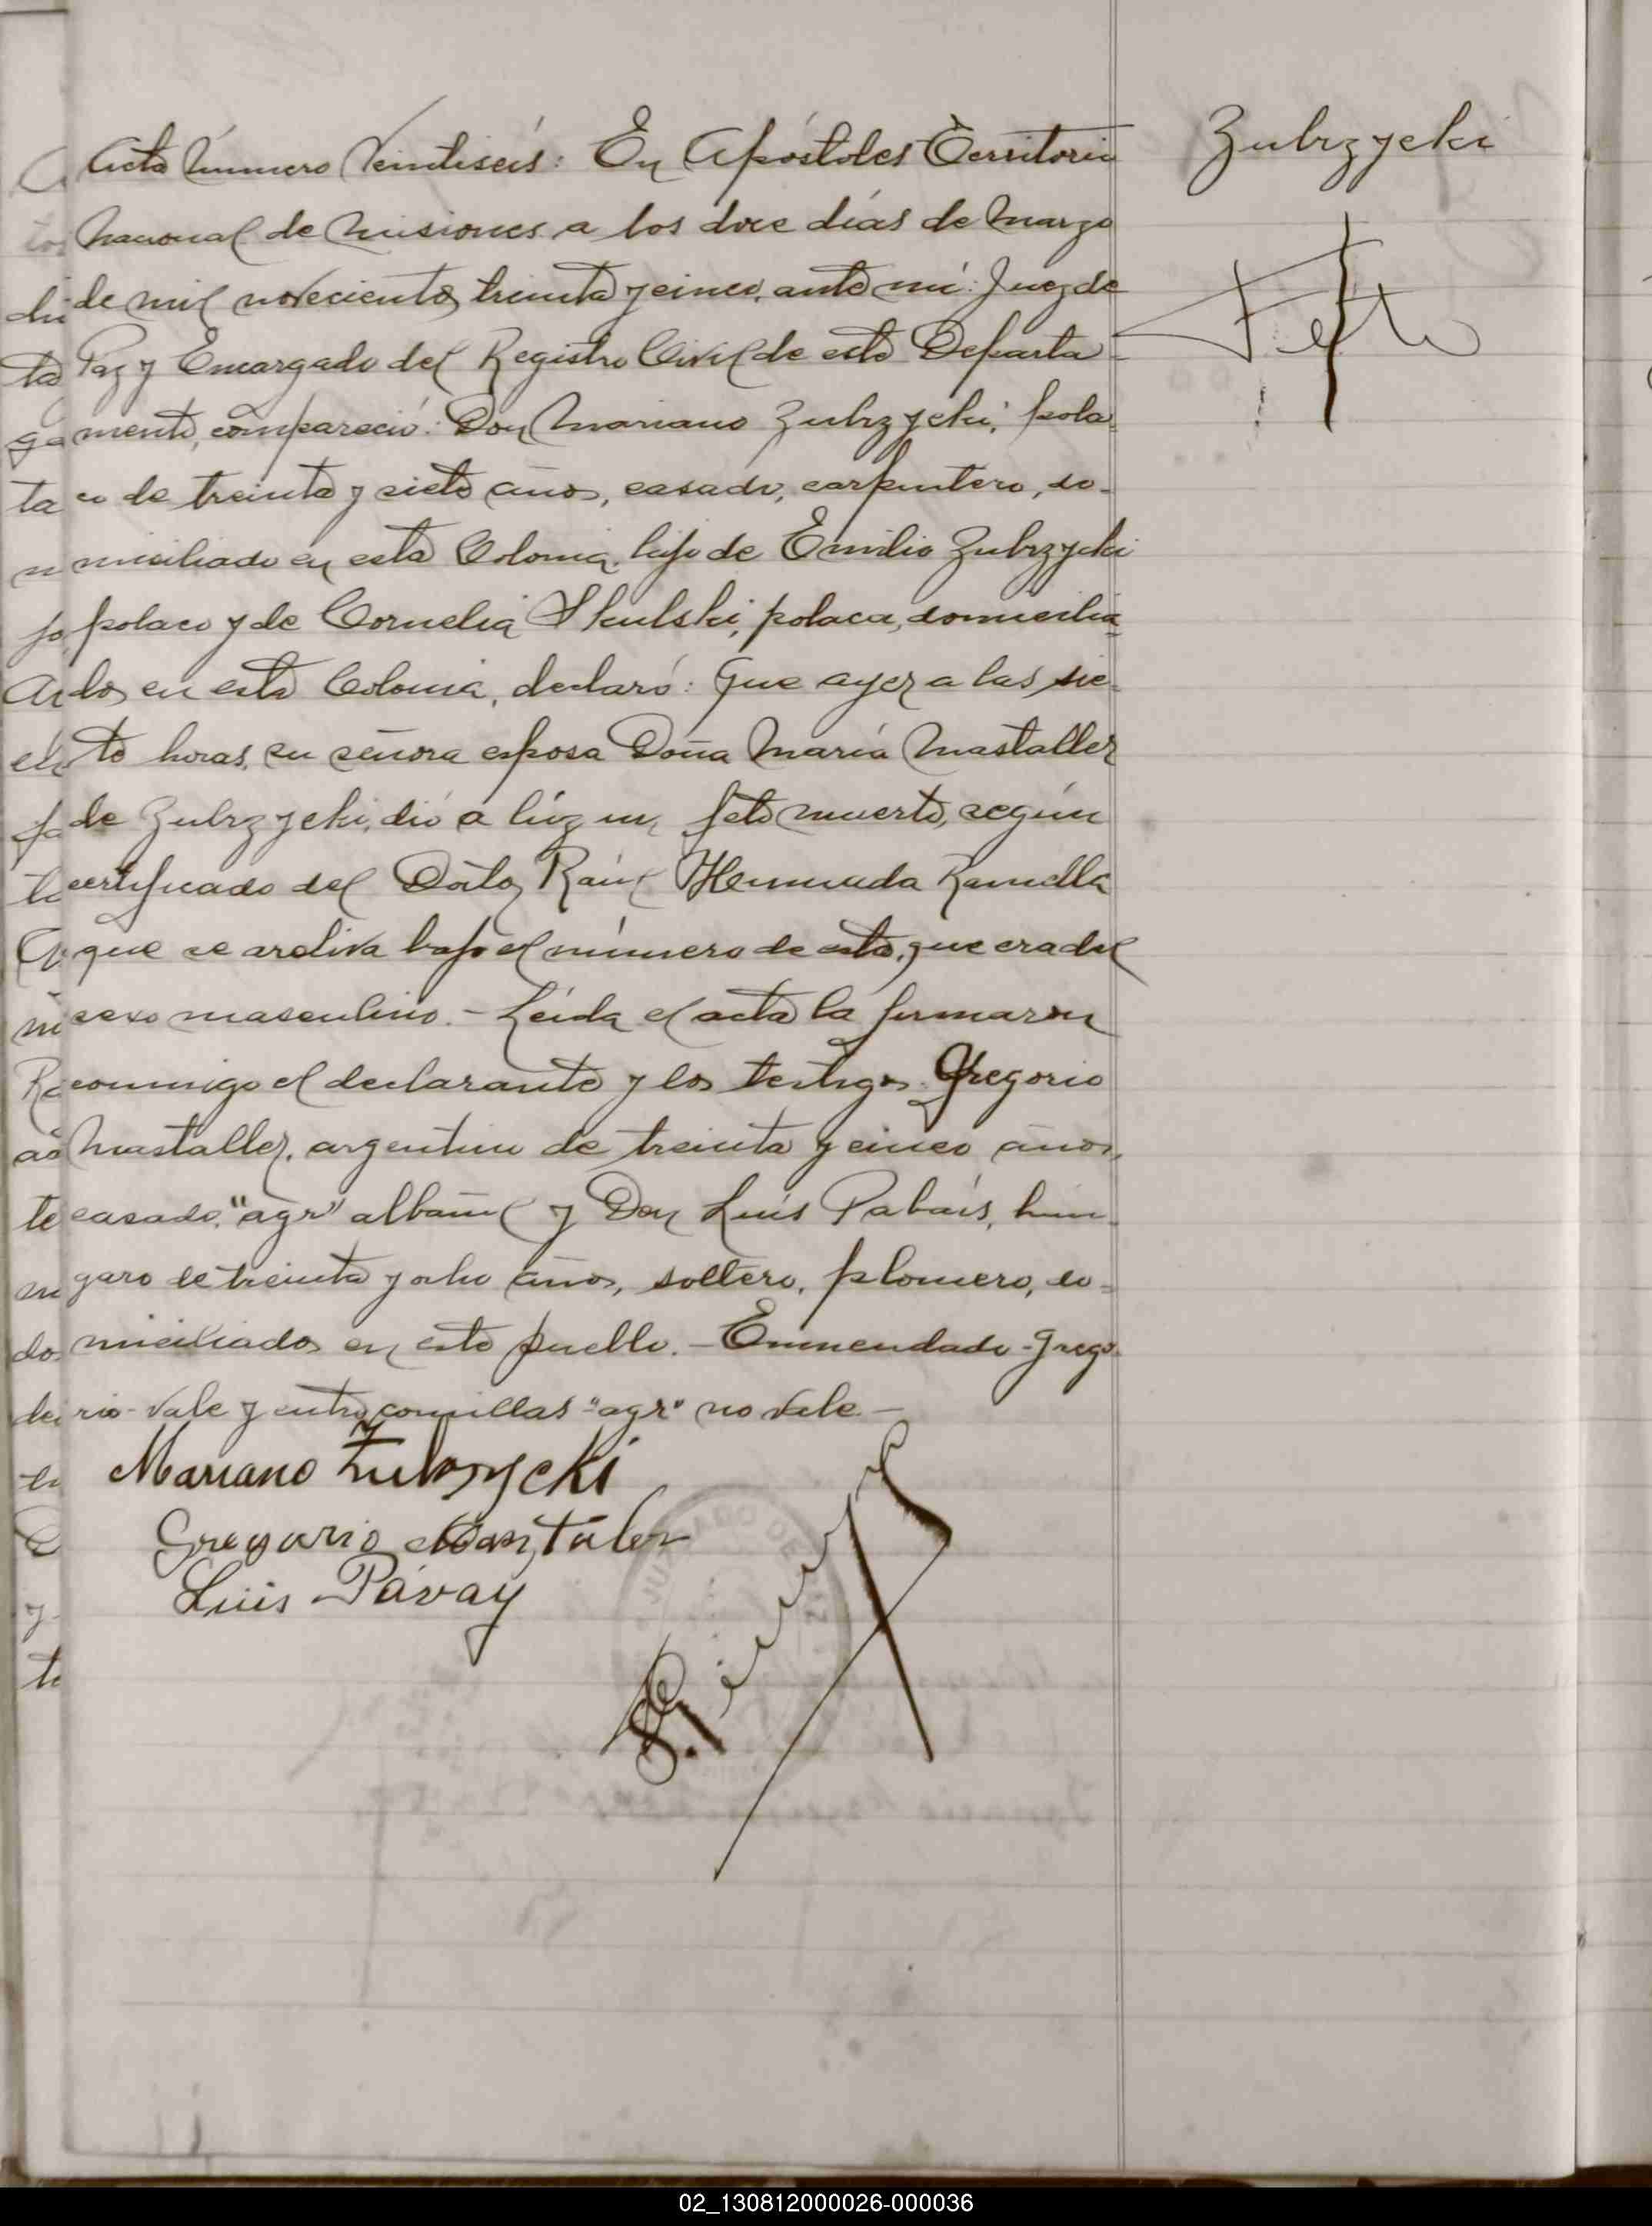 Acta número veintiseis: En Apóstoles Territorio
Nacional de Misiones a los doce días de Marzo
de mil novecientos treinta y cinco, ante mí: Juez de
Paz y Encargado del Registro Civil de este Departa-
mento, compareció: Don Mariano Zubrzycki, pola-
co de treinta y siete años, casado, carpintero, do-
miciliado en esta Colonia, hijo de Emilio Zubrzycki
polaco y de Cornelia Skulski, polaca, domicilia-
dos en esta Colonia, declaró: Que ayer a las sie-
te horas, su señora esposa Doña María Mastaller
de Zubrzycki, dió a lúz un feto muerto, según
certificado del Doctor Raúl Ramella
que se archiva bajo el número de esta, que era del
sexo masculino.- Leída el acta la firmaron
conmigo el declarante y los testigos Gregorio
Mastaller, argentino de treinta y cinco años,
casado, "agr" albañil y Don Luís Pabais, hún-
garo de treinta y ocho años, soltero, plomero, do-
miciliados en este pueblo.- Enmendado-Grego-
rio-vale y entre comillas "agr" no vale-
Mariano Zubrzycki
Gregorio
Luis Pávay
JUZGADO DE PAZ
Zubrzycki
Feto
02_130812000026-000036